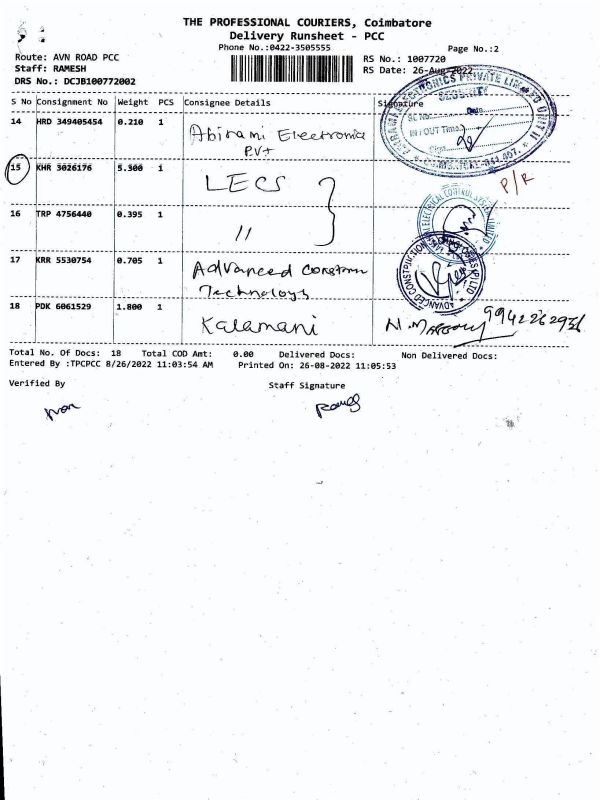 THE PROFESSIONAL COURIERS, Coimbatore
Delivery Runsheet - PCC
Phone No.:0422-3505555
Page No.:2
Route: AVN ROAD PCC
Staff: RAMESH
DRS No.: DCJB100772002
RS No.: 1007720
RS Date: 26-Aug-2022
S No Consignment No Weight PCS Consignee Details Signature
14 HRD 349405454 0.210 1 Abirami Electronics
Pvt
SECURITY
Date
IN / OUT Time
Sign
P/R
15 KHR 3026176 5.300 1 LECS
16 TRP 4756440 0.395 1 "
17 KRR 5530754 0.705 1 Advanced Constrn
Technologys
18 PDK 6061529 1.800 1 Kalamani 9942262936
Total No. Of Docs: 18 Total COD Amt: 0.00 Delivered Docs: Non Delivered Docs:
Entered By :TPCPCC 8/26/2022 11:03:54 AM Printed On: 26-08-2022 11:05:53
Verified By Staff Signature